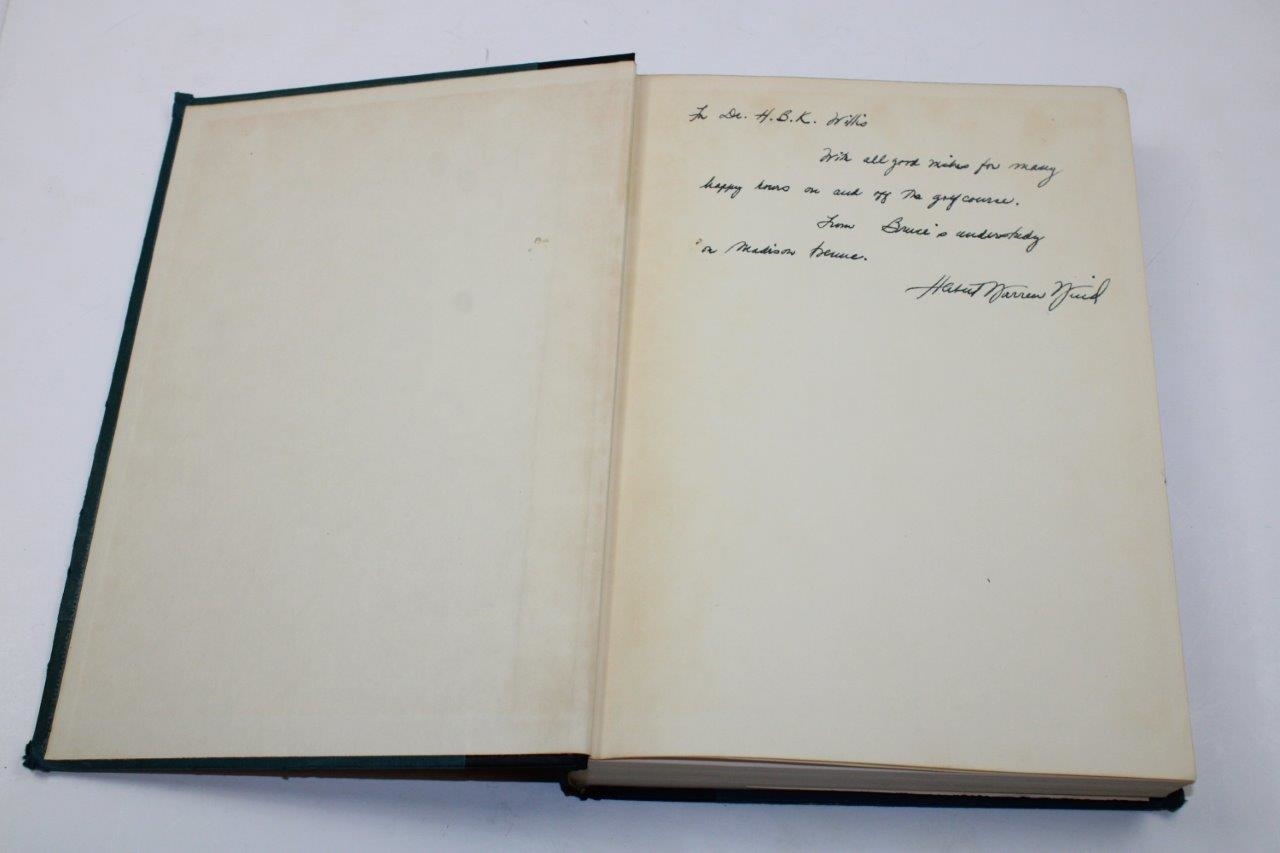 To Dr. H.B.K. Willis
With all good wishes for many
happy hours on and off the golf course.
From Bruce's understudy
on Madison Avenue.
Herbert Warren Wind